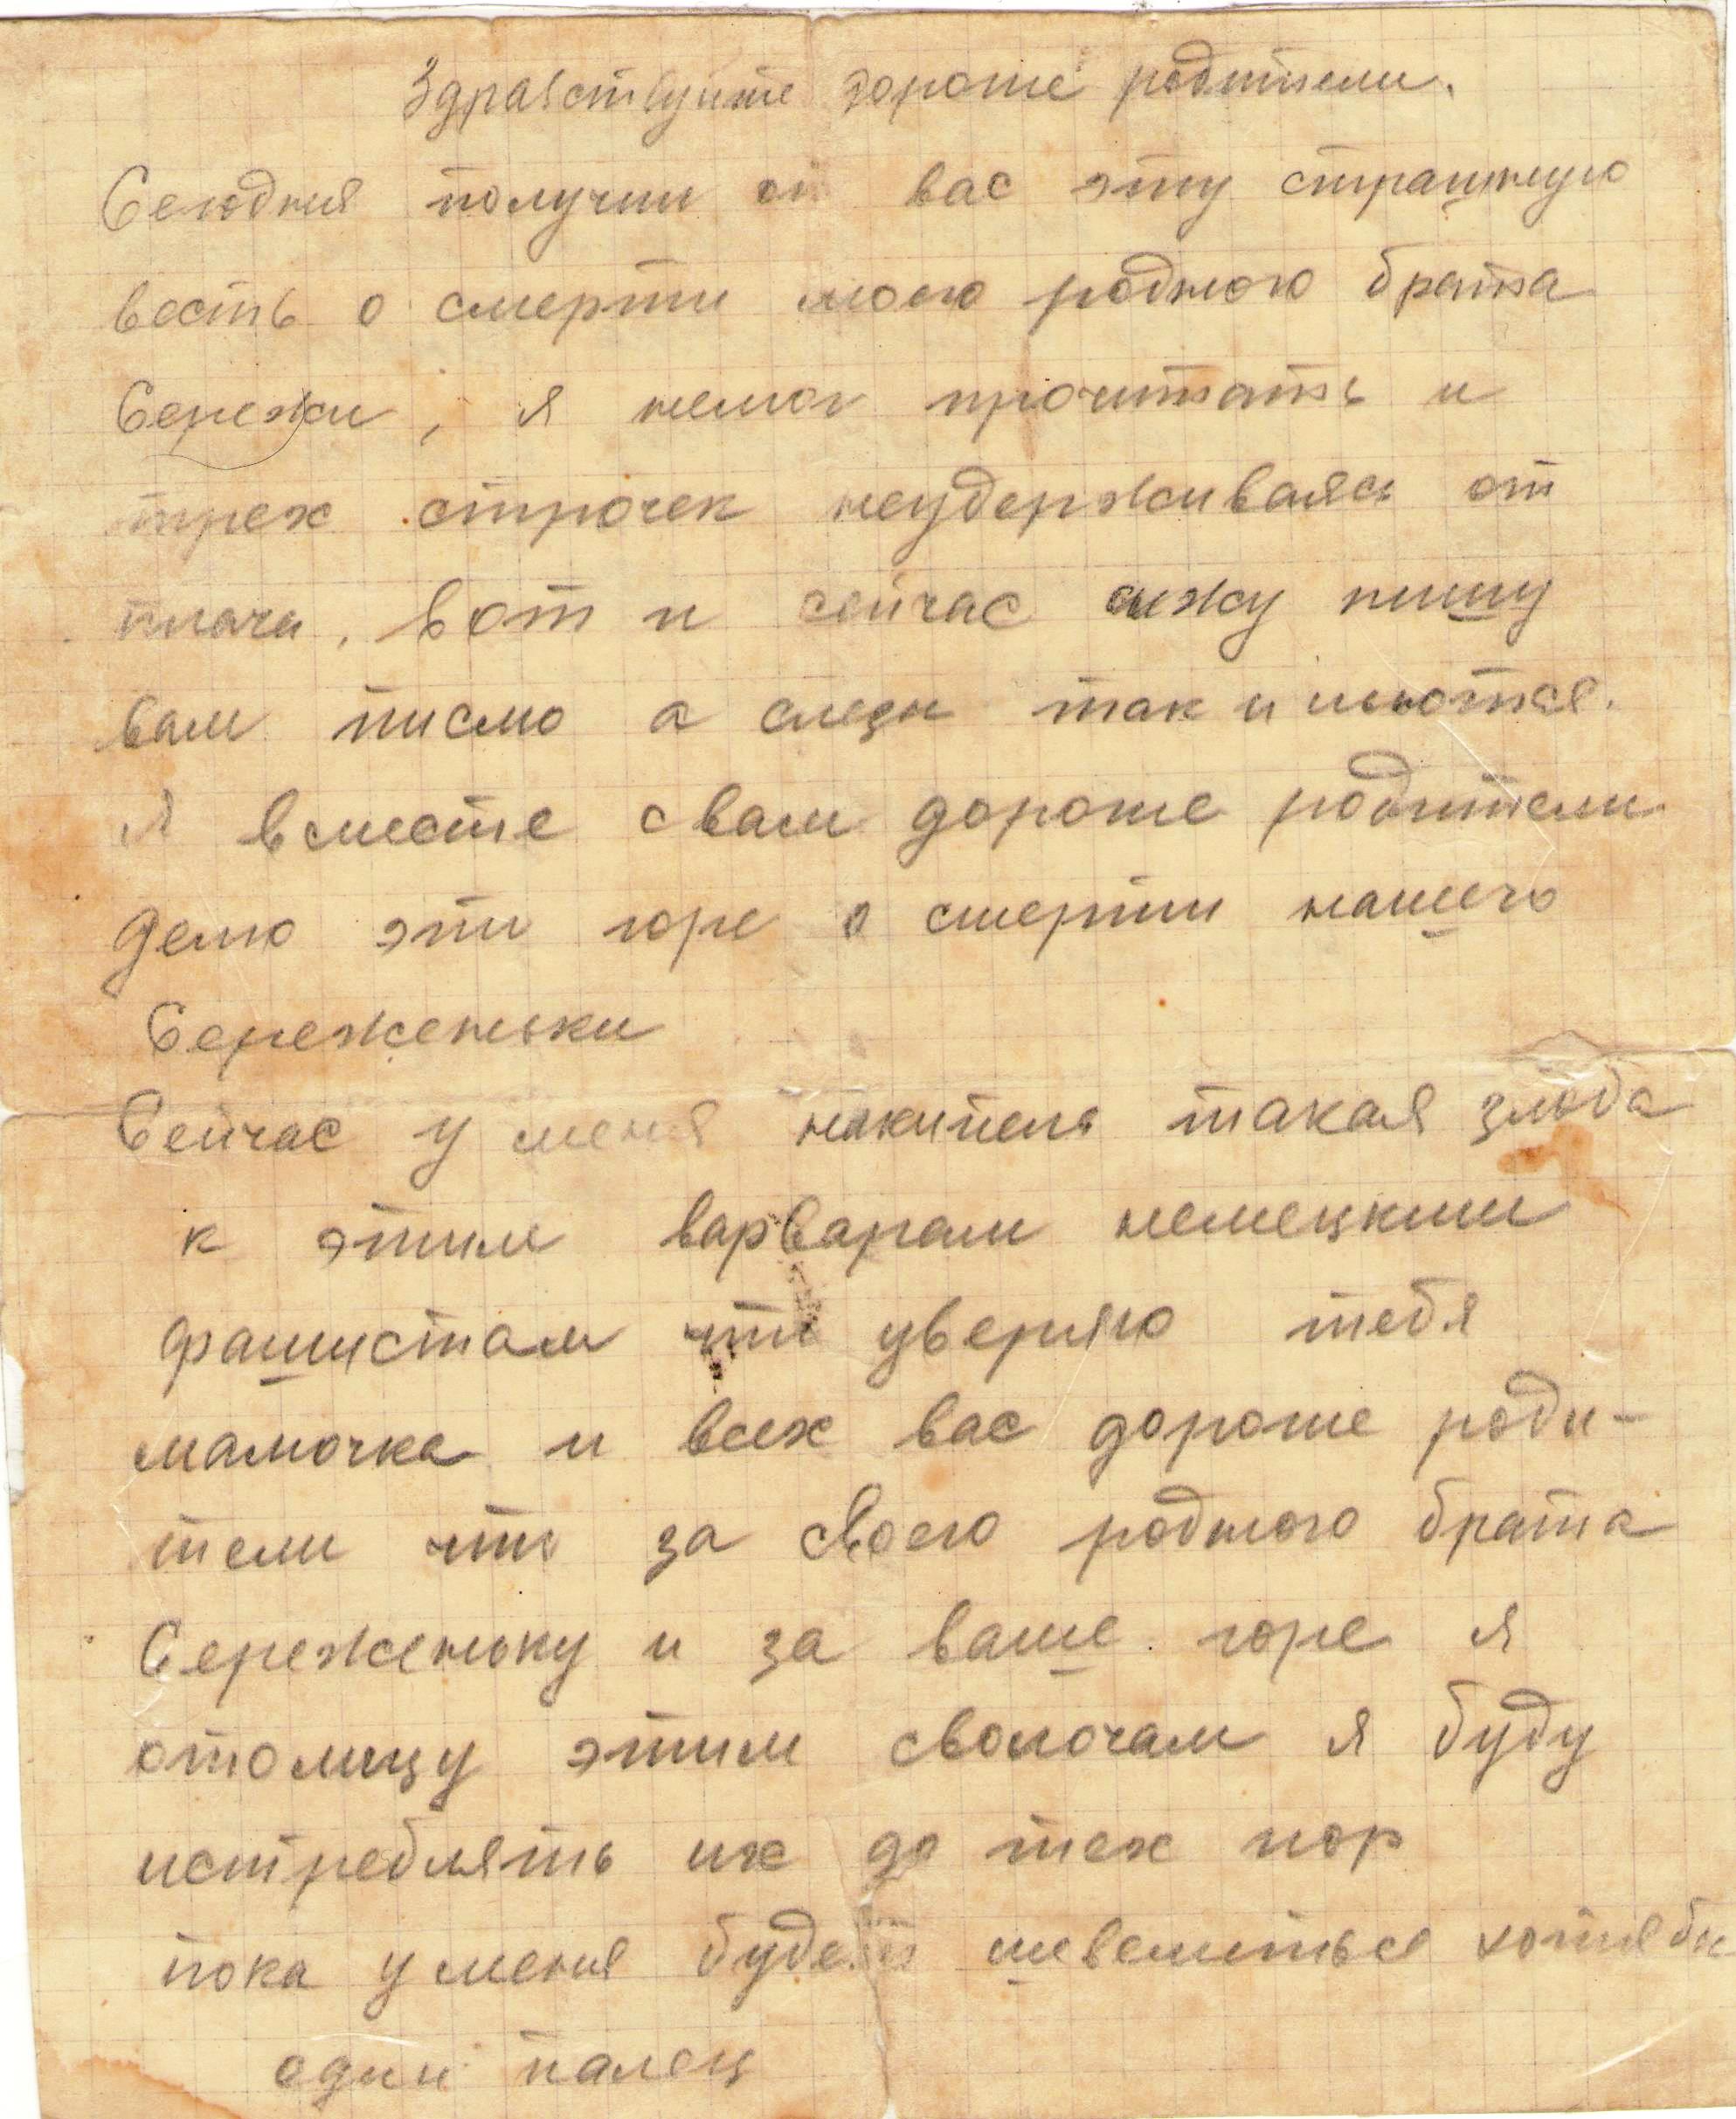 Здравствуйте дорогие родители.
Сегодня получил от вас эту страшную
весть о смерти моего родного брата
Сережи, я немог прочитать и
трех строчек неудерживаясь от
плача. Вот и сейчас сижу пишу
вам писмо а слезы так и льются.
Я вместе свами дорогие родители
делю эти горе о смерти нашего
Сереженьки
Сейчас у меня накипела такая злоба
к этим варварам немецким
фашистам что уверяю тебя
мамочка и всех вас дорогие роди-
тели что за своего родного брата
Сереженьку и за ваше горе я
отомщу этим сволочам я буду
истреблять их до тех пор
пока у меня будет шевелиться хотябы
один палец